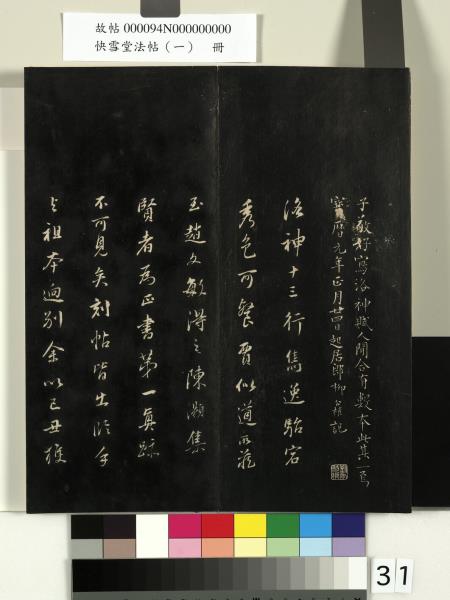 故帖 000094N000000000
快雪堂法帖(一) 冊
子敬好寫洛神賦人間合有數本此其一焉
寶曆元年正月廿四日起居郎柳公權記
洛神十三行雋逸駘宕
秀色可餐賈似道所藏
玉趙文敏得之陳顥集
賢者為正書第一真跡
不可見矣刻帖皆出臨手
與祖本迥別余以己丑獲
31